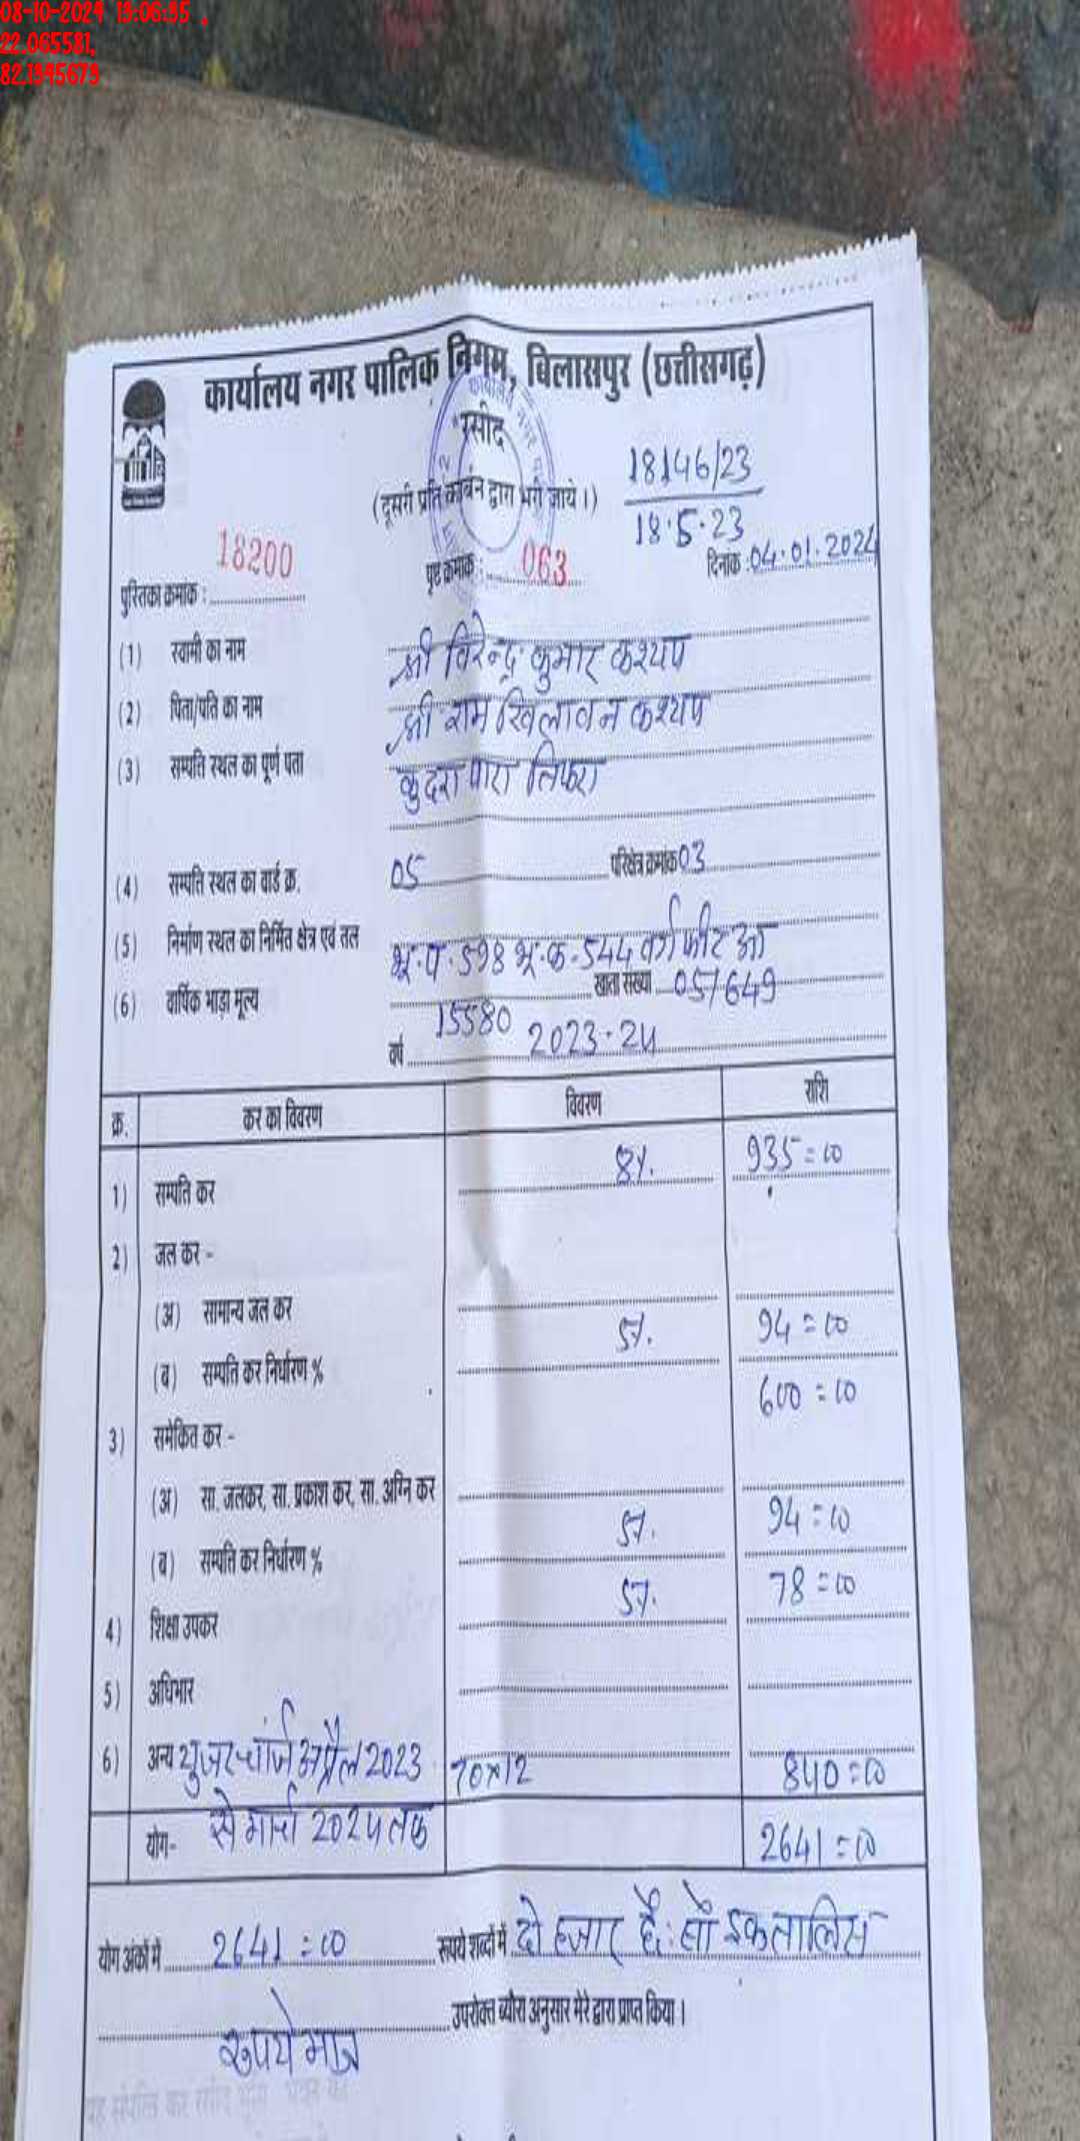 08-10-2024 13:06:35 .
22.065581,
82.1345673
कार्यालय नगर पालिक निगम, बिलासपुर (छत्तीसगढ़)
रसीद
(दूसरी प्रति कार्बन द्वारा भरी जाये।)
18146/23
18.5.23
पुस्तिका क्रमांक : 18200 पृष्ठ क्रमांक : 063 दिनांक : 04.01.2024
(1) स्वामी का नाम श्री विरेन्द्र कुमार कश्यप
(2) पिता/पति का नाम श्री राम खिलावन कश्यप
(3) सम्पति स्थल का पूर्ण पता कुदरा पारा तिफरा
(4) सम्पति स्थल का वार्ड क्र. 05 परिक्षेत्र क्रमांक 03
(5) निर्माण स्थल का निर्मित क्षेत्र एवं तल भू.प. 598 भू.क. 544 वर्ग फीट
(6) वार्षिक भाड़ा मूल्य 15580 खाता संख्या 057649
वर्ष 2023-24
क्र. कर का विवरण विवरण राशि
1) सम्पति कर 8%. 935=00
2) जल कर -
(अ) सामान्य जल कर
(ब) सम्पति कर निर्धारण % 5%. 94=00
600=00
3) समेकित कर -
(अ) सा. जलकर, सा. प्रकाश कर, सा. अग्नि कर
(ब) सम्पति कर निर्धारण % 5%. 94=00
4) शिक्षा उपकर 5%. 78=00
5) अधिभार
6) अन्य युजर चार्ज अप्रैल 2023 70x12 840=00
से मार्च 2024 तक
योग- 2641=00
योग अंकों में 2641=00 रूपये शब्दों में दो हजार छै: सौ इकतालिस
रूपये मात्र उपरोक्त ब्यौरा अनुसार मेरे द्वारा प्राप्त किया।